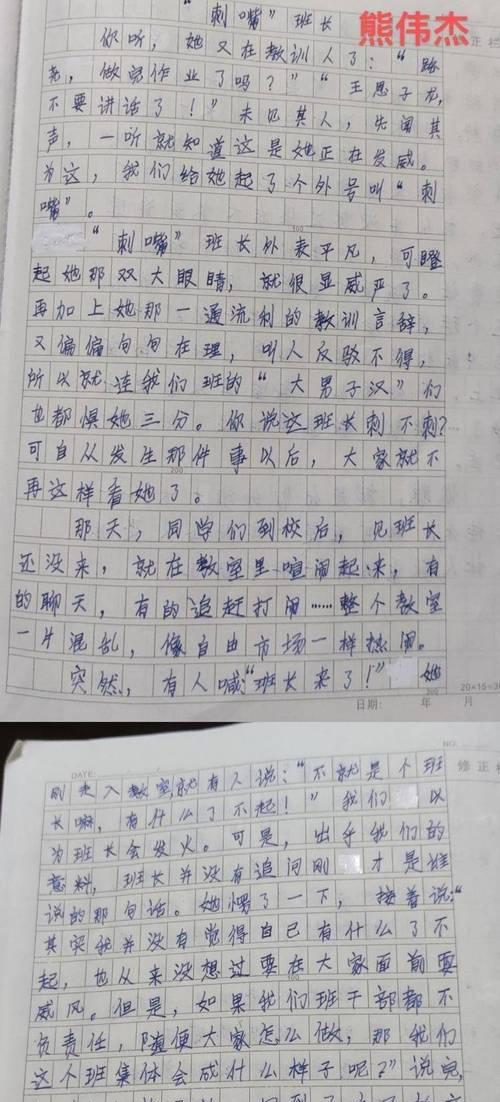 “刺嘴”班长
熊伟杰
你听，她又在教训人了：“路
尧，做完作业了吗？”“王思子龙，
不要讲话了！”未见其人，先闻其
声，一听就知道这是她正在发威。
为这，我们给她起了个外号叫“刺
嘴”。
“刺嘴”班长外表平凡，可瞪
起她那双大眼睛，就很显威严了。
再加上她那一通流利的教训言辞，
又偏偏句句在理，叫人反驳不得，
所以就连我们班的“大男子汉”们
也都惧她三分。你说这班长刺不刺？
可自从发生那件事以后，大家就不
再这样看她了。
那天，同学们到校后，见班长
还没来，就在教室里喧闹起来，有
的聊天，有的追赶打闹……整个教室
一片混乱，像自由市场一样热闹。
突然，有人喊：“班长来了！”她
20×15=30
日期： 年 月
NO.
DATE:
修正栏
刚走入教室，就有人说：“不就是个班
长嘛，有什么了不起！”我们以
为班长会发火。可是，出乎我们的
意料，班长并没有追问刚才是谁
说的那句话。她愣了一下，接着说：“
其实我并没有觉得自己有什么了不
起，也从来没想过要在大家面前耍
威风。但是，如果我们班干部都不
负责任，随便大家怎么做，那我们
这个班集体会成什么样子呢？”说完，